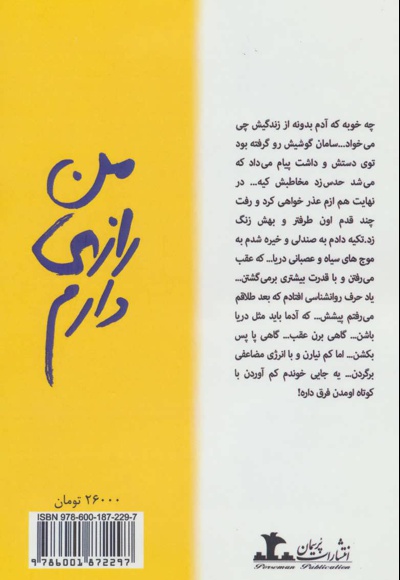 چه خوبه که آدم بدونه از زندگیش چی
می‌خواد...سامان گوشیش رو گرفته بود
توی دستش و داشت پیام می‌داد که
می‌شد حدس‌زد مخاطبش کیه... در
نهایت هم ازم عذر خواهی کرد و رفت
چند قدم اون طرفتر و بهش زنگ
زد.تکیه دادم به صندلی و خیره شدم به
موج های سیاه و عصبانی دریا... که عقب
می‌رفتن و با قدرت بیشتری برمی‌گشتن...
یاد حرف روانشناسی افتادم که بعد طلاقم
می‌رفتم پیشش... که آدما باید مثل دریا
باشن... گاهی برن عقب... گاهی پا پس
بکشن... اما کم نیارن و با انرژی مضاعفی
برگردن... یه جایی خوندم کم آوردن با
کوتاه اومدن فرق داره!
من
رازی
دارم
۲۶۰۰۰ تومان
ISBN 978-600-187-229-7
9786001872297
انتشارات پُرسمان
Porseman Publication